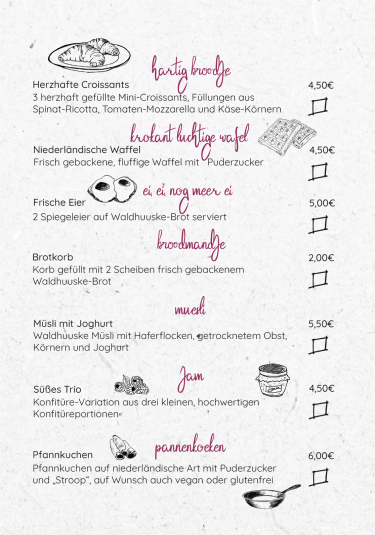 hartig broodje
Herzhafte Croissants 4,50€
3 herzhaft gefüllte Mini-Croissants, Füllungen aus
Spinat-Ricotta, Tomaten-Mozzarella und Käse-Körnern
krokant luchtige wafel
Niederländische Waffel 4,50€
Frisch gebackene, fluffige Waffel mit Puderzucker
ei, ei, nog meer ei
Frische Eier 5,00€
2 Spiegeleier auf Waldhuuske-Brot serviert
broodmandje
Brotkorb 2,00€
Korb gefüllt mit 2 Scheiben frisch gebackenem
Waldhuuske-Brot
muesli
Müsli mit Joghurt 5,50€
Waldhuuske Müsli mit Haferflocken, getrocknetem Obst,
Körnern und Joghurt
Jam
Süßes Trio 4,50€
Konfitüre-Variation aus drei kleinen, hochwertigen
Konfitüreportionen
pannenkoeken
Pfannkuchen 6,00€
Pfannkuchen auf niederländische Art mit Puderzucker
und „Stroop“, auf Wunsch auch vegan oder glutenfrei